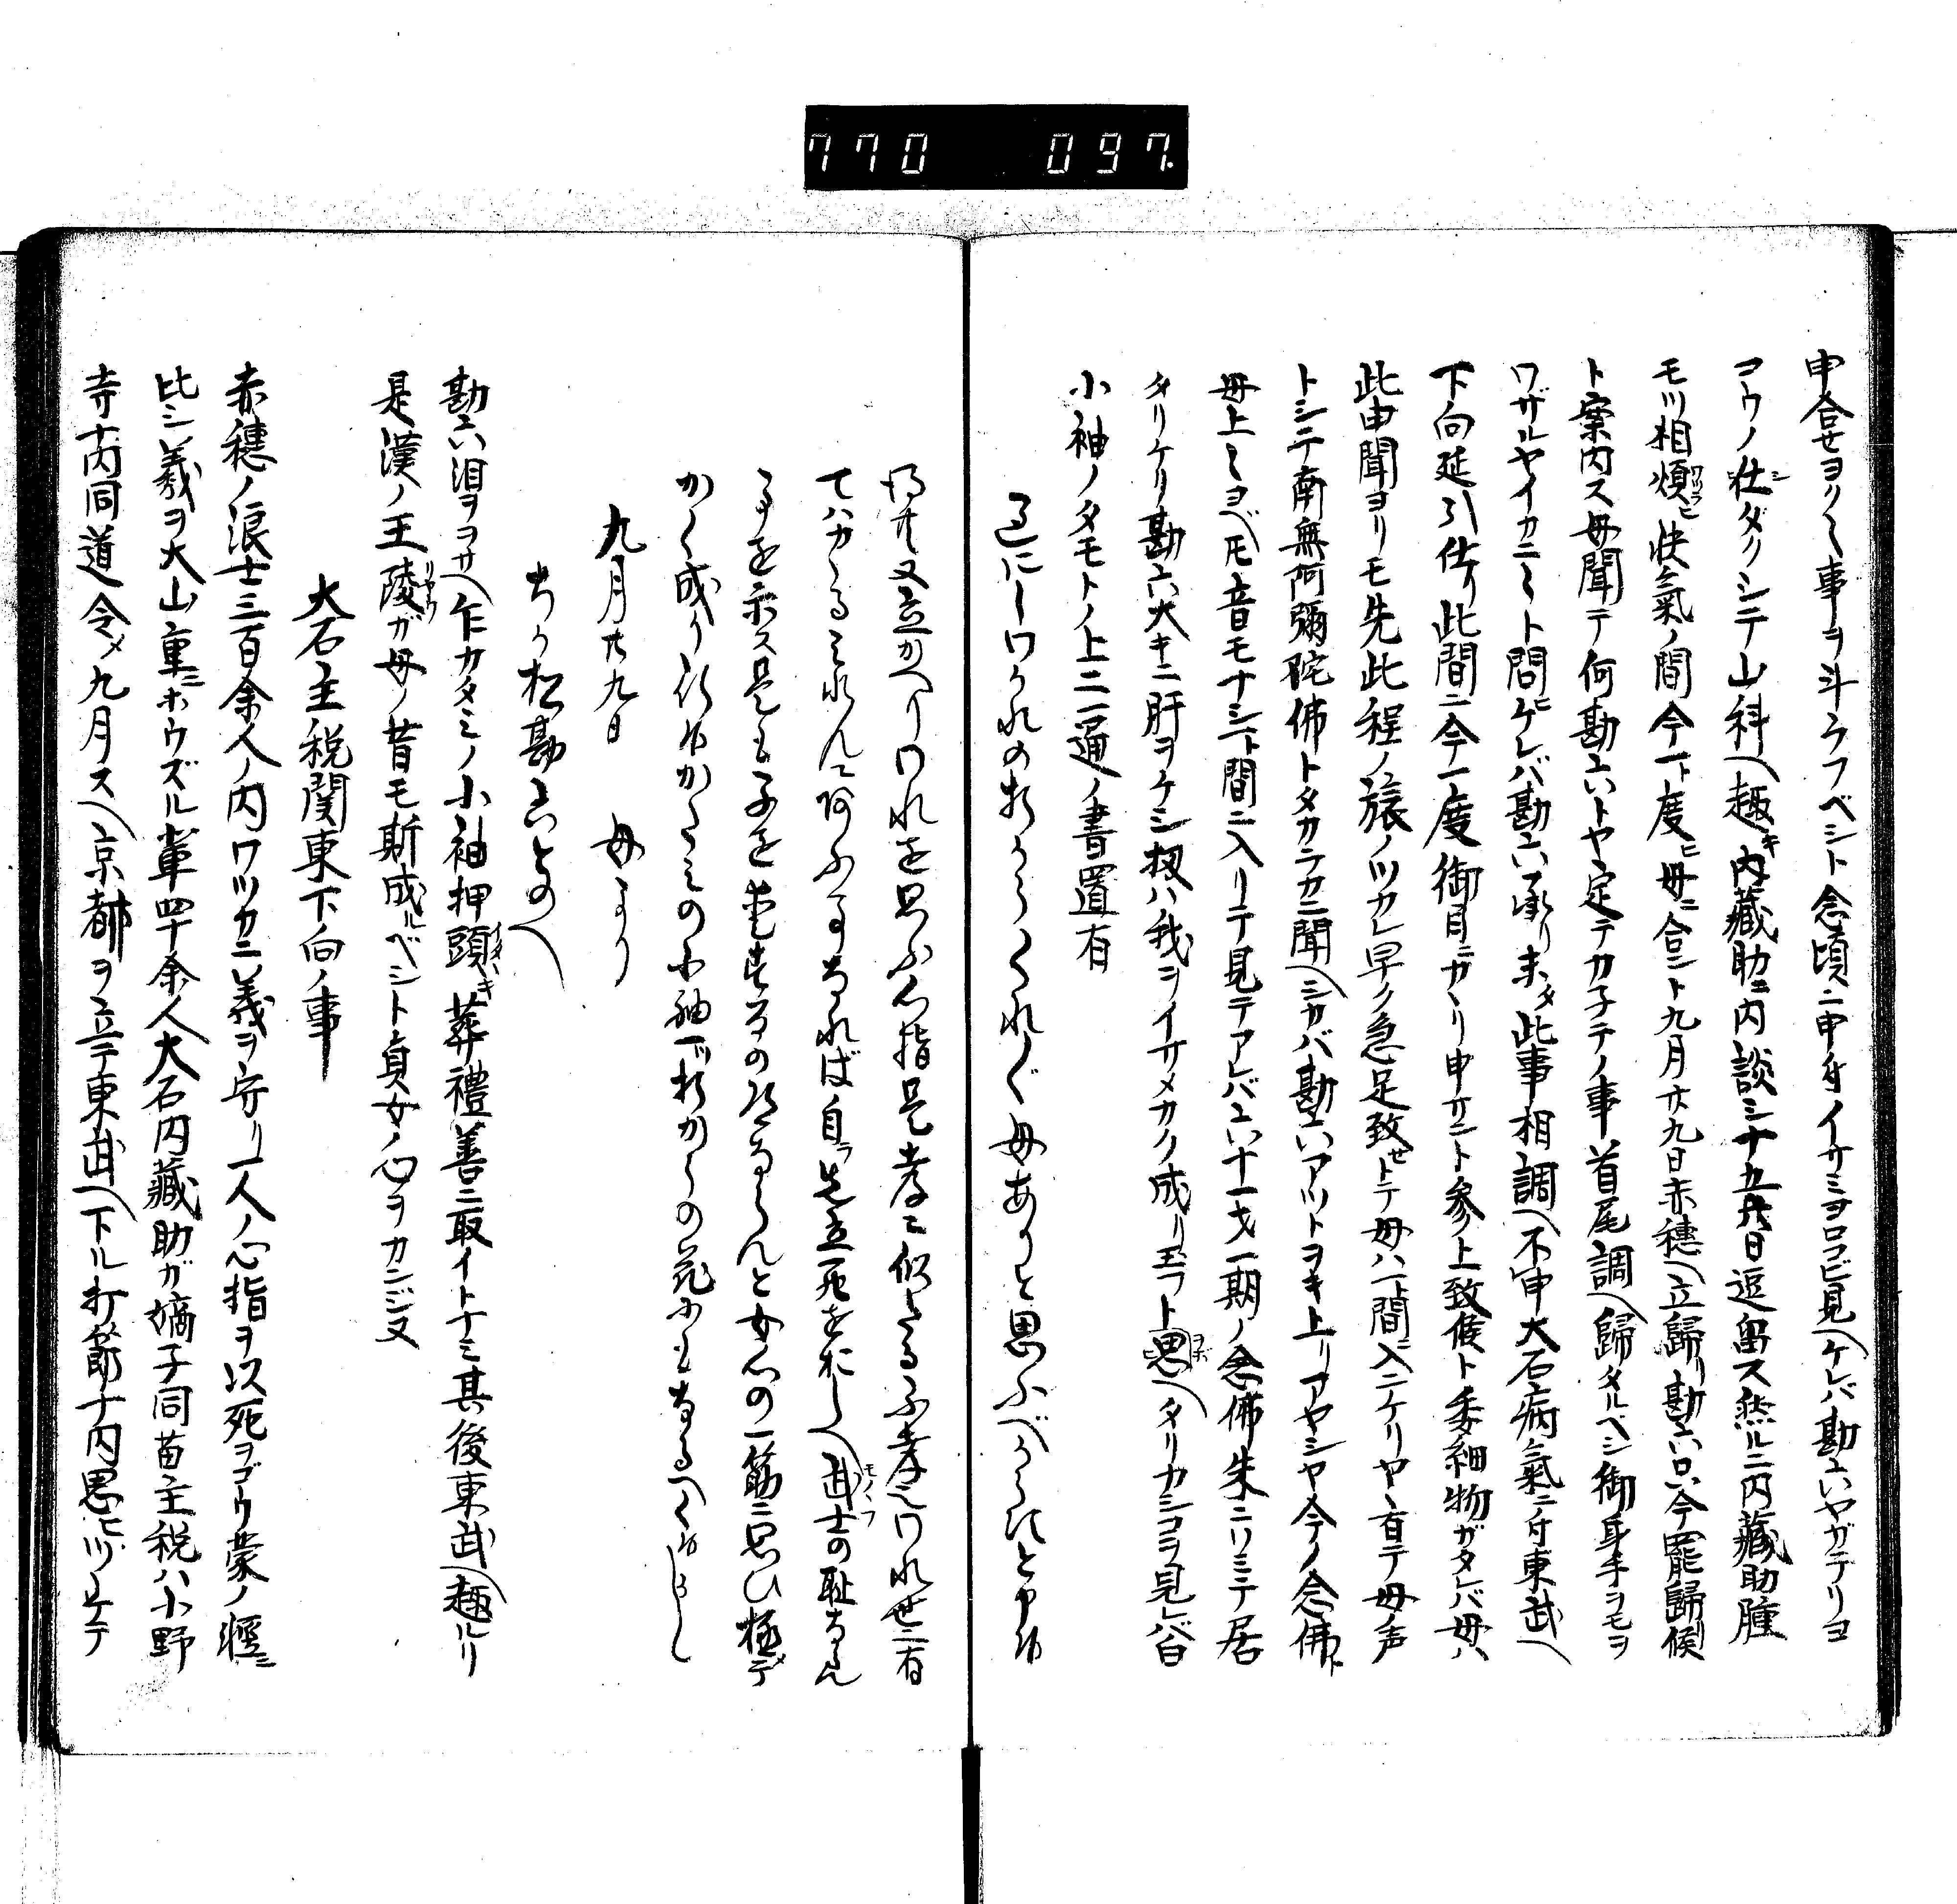 770 097.
申合セヨリ〱事ヲ斗ラフベシト念頃ニ申付イサミヨロコビ見ヘケレバ勘六ハヤガテリヨ
コウノ仕ダクシニテ山科ヘ趣キ内藏助ニ内談シ十五六日逗留ス然ルニ内藏助腫
モツ相煩ヒ快氣ノ間今一ト度ヒ母ニ合ント九月廿九日赤穂ヘ立歸リ勘六ハ只今罷歸リ候
ト案内ス母聞テ何勘六ハトヤ定テカ子テノ事首尾調ヘ歸タルベシ御身手ヲモヲ
ワザルヤイカニ〱ト問ニケレバ勘六ハ承リ未タ此事相調ヘ不申大石病氣ニ付東武ヘ
下向延引仕リ此間ニ今一度御目ニカヽリ申サント参上致候ト委細物ガタレバ母ハ
此由聞ヨリモ先此程ノ旅ノツカレ早ク急足致セトテ母ハ一ト間ニ入ニケリヤヽ有テ母ノ声
トシテ南無阿彌陀佛トタカラカニ聞ヘシカバ勘六ハアツトヲキ上リアヤシヤ今ノ念佛ト
母上〱ヨベ𪜈音モナシ一ト間ニ入リテ見テアレバ六十一才一期ノ念佛朱ニソミテ居
タリケリ勘六大キニ肝ヲケシ扨ハ我ヲイサメカク成リ玉フト思ヒタリカシコヲ見レバ白
小袖ノタモトノ上ニ一通ノ書置有
過にしわかれの折からくれ〲母ありと思ふべからすと申候
得共又立かへりわれを思ふ心指是孝に似たるふ孝也われ世ニ有
てハかゝる
事を示ス是も子を
かく成り行候かたみの小袖一ツ折からの花にもなるへく候かしく
九月廿九日 母より
ちか松勘六とのへ
勘六ハ泪ヲヲサヘ乍カタミノ小袖押頭キ葬禮善ニ取イトナミ其後東武ヘ趣ルリ
是漢ノ王陵ガ母ノ昔モ斯成ルベシト貞女ノ心ヲカンジヌ
大石主税関東下向ノ事
赤穂ノ浪士三百余人ノ内ワツカニ義ヲ守リ一人ノ心指ヲ以死ヲゴウ蒙ノ軽ニ
比シ義ヲ大山ノ重ニホウズル輩四十余人大石内藏助ガ嫡子同苗主税ハ小野
寺十内同道令メ九月スヘ京都ヲ立テ東武ヘ下ル折節十内思ヒツヾケテ